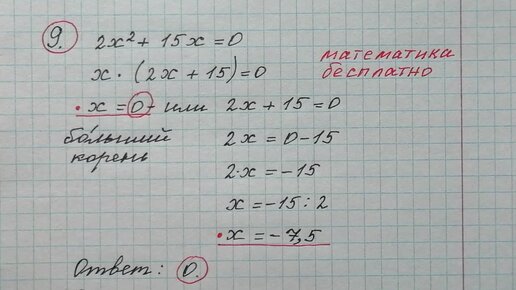 9. 2x² + 15x = 0
математика
бесплатно
x · (2x + 15) = 0
x = 0 - или 2x + 15 = 0
больший
корень
2x = 0 - 15
2·x = -15
x = -15 : 2
x = -7,5
Ответ: 0.